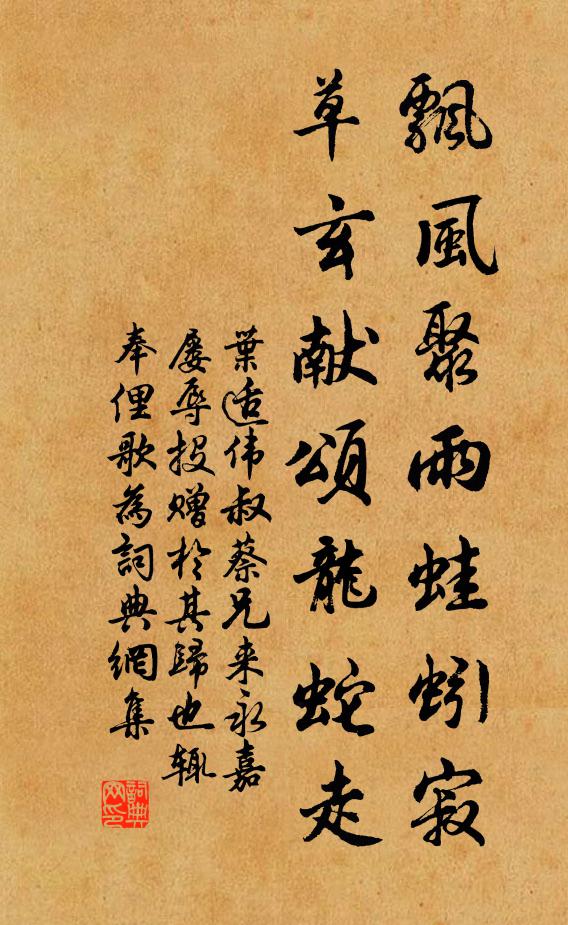 飄風聚雨蛙蚓寂
草玄献頌龍蛇走
葉适伟叔蔡兄来永嘉
屡辱投赠於其歸也辄
奉俚歌為詞典網集
詞典網印